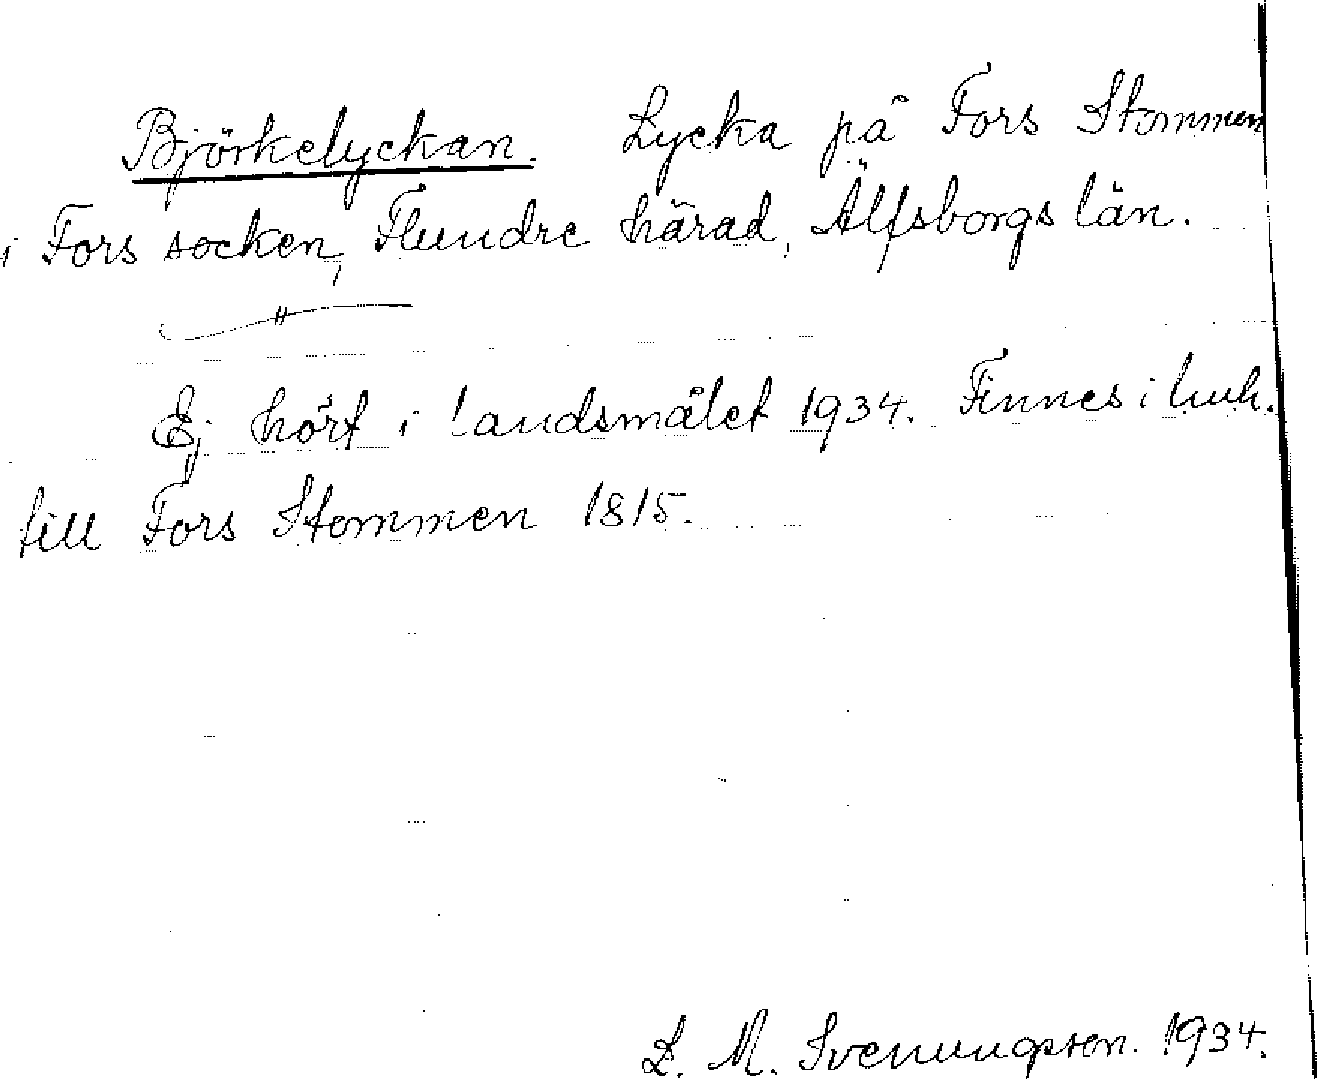 Björkelyckan. Lycka på Fors Stommen
i Fors socken, Flundre härad, Älfsborgs län.
"
Ej hört i landsmålet 1934. Finnes i huh.
till Fors Stommen 1815.
L. M. Svenungsson. 1934.